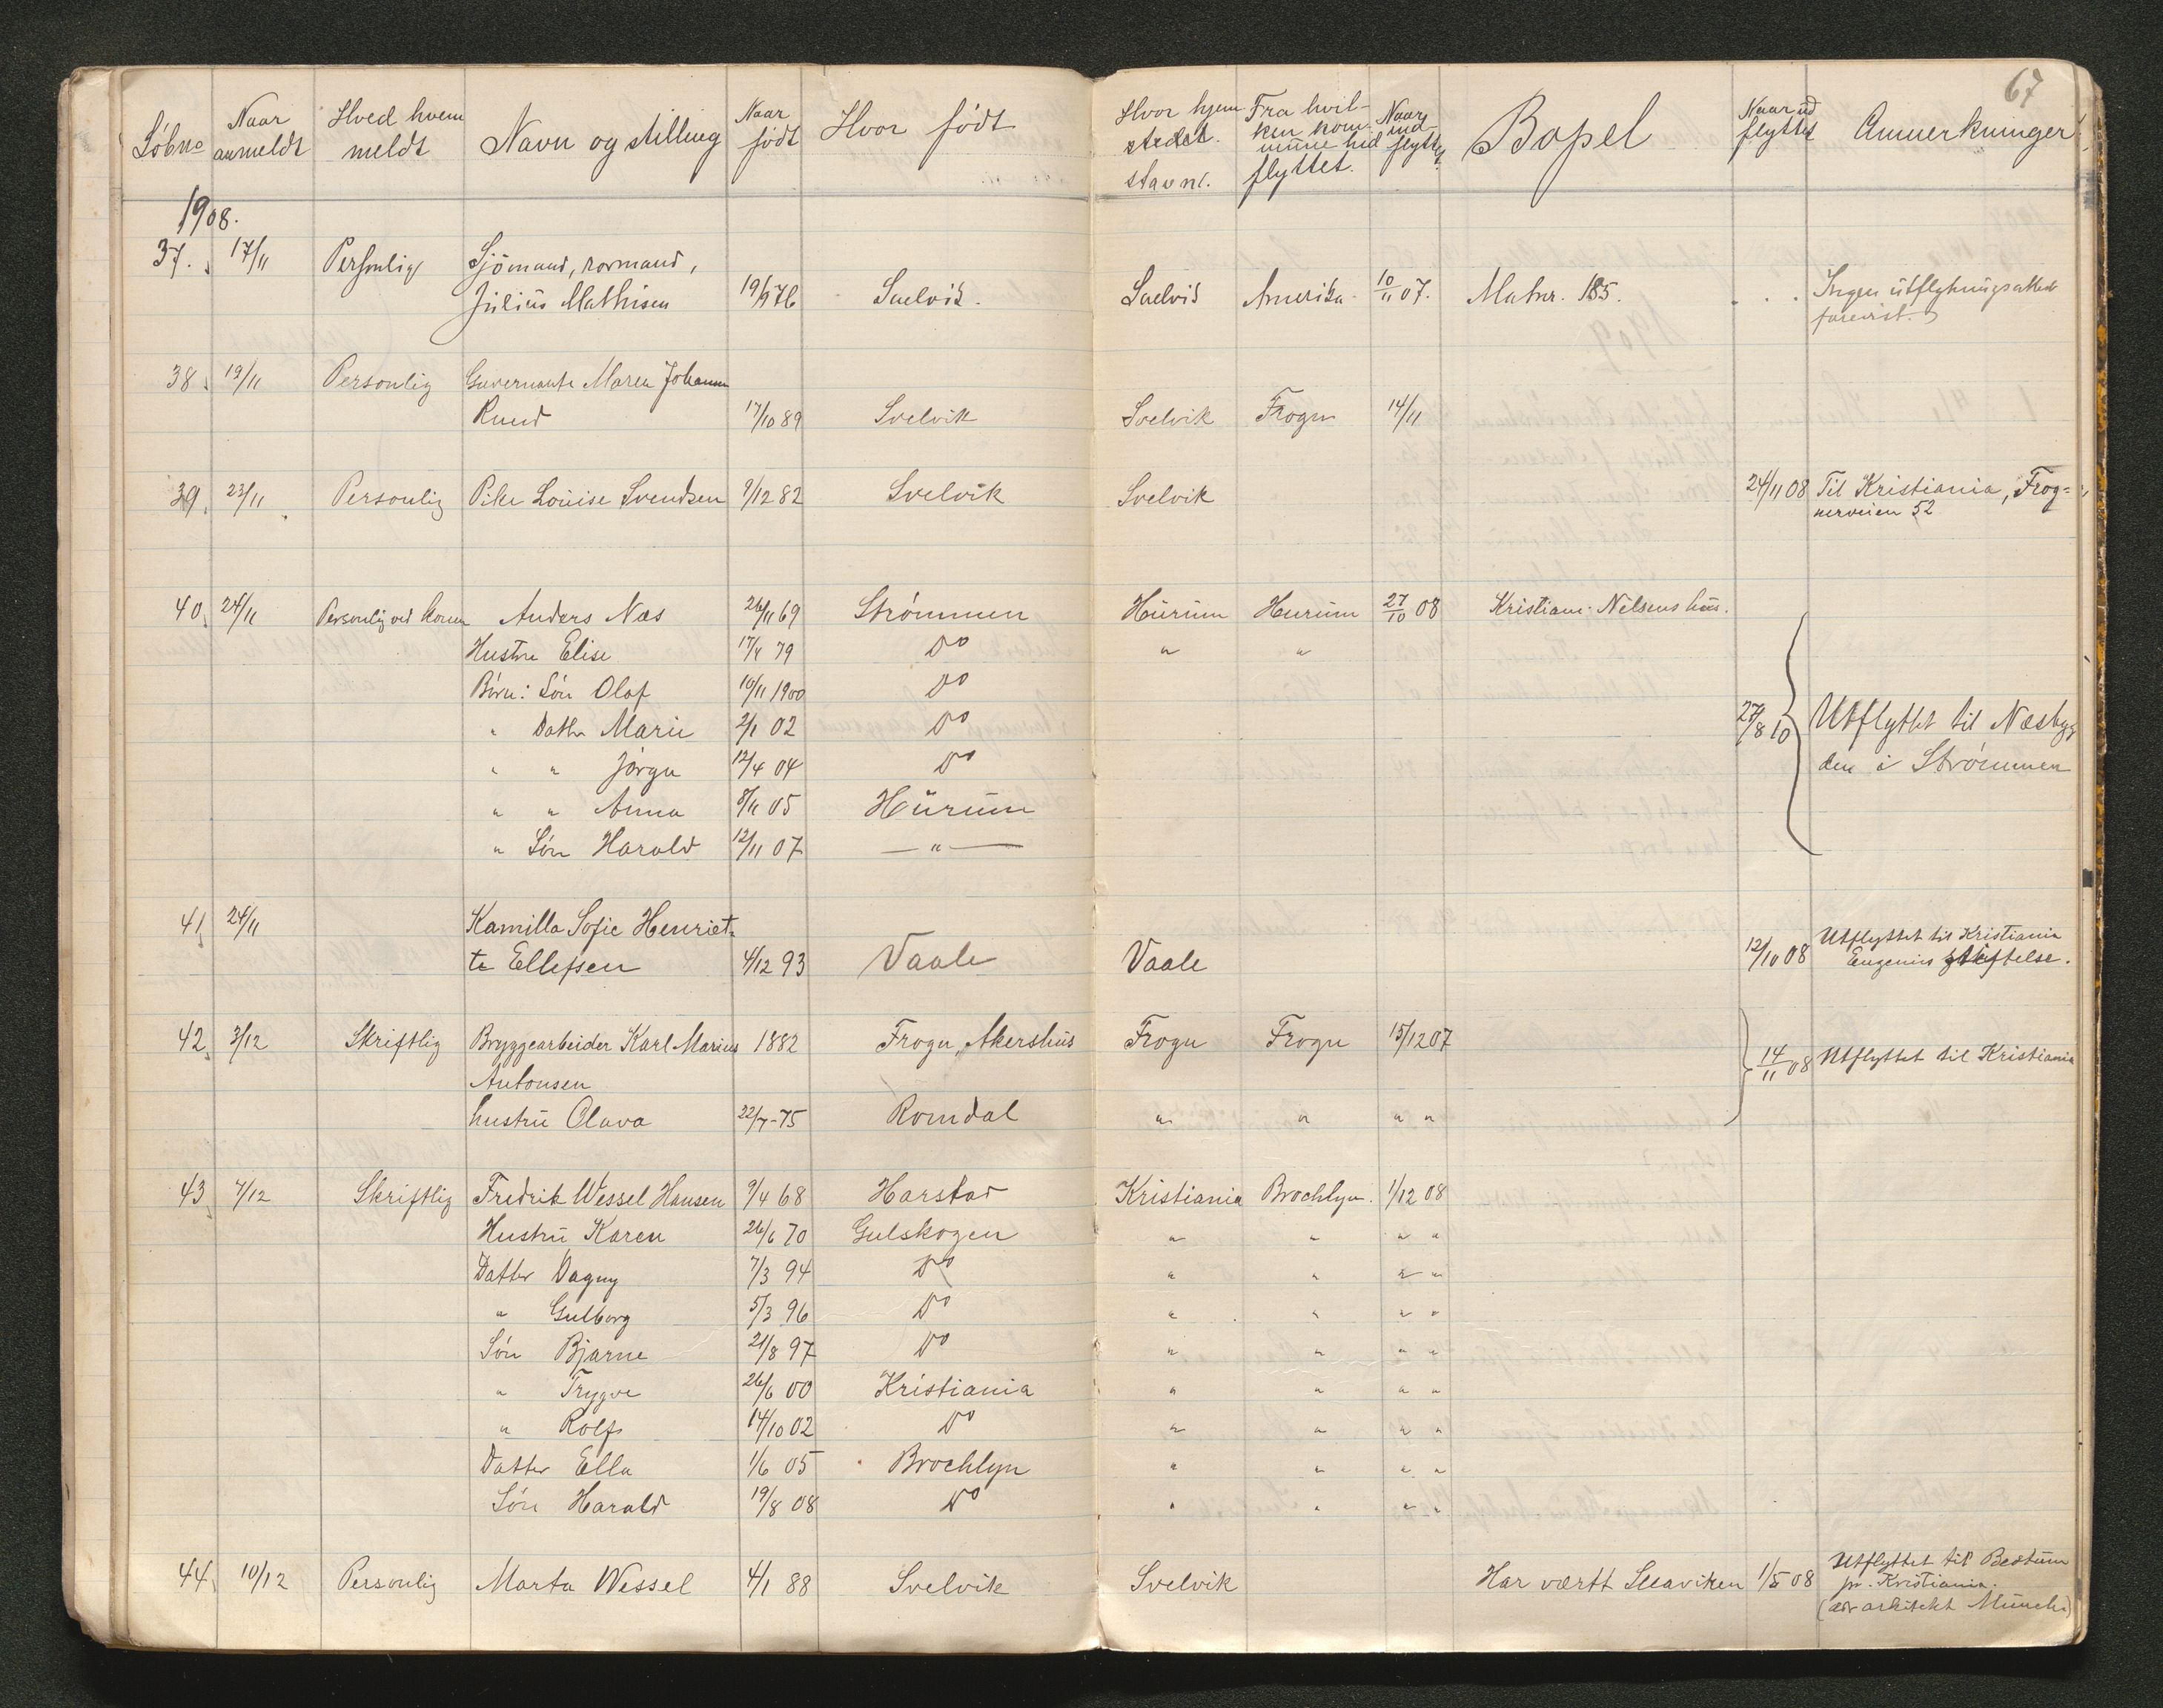 67
Løbno Naar anmeldt Hved hvem meldt Navn og stilling Naar født Hvor født Hvor hjem stedet stavn. Fra hvilken kommune hid flyttet. Naar ind flyttet Bopel Naar ud flyttet Anmerkninger
1908.
37. 17/11 Personlig Sjömand, normand, Ingen utflytningsattest
Julius Mathisen 19/9 76 Svelvik. Svelvik Amerika 10/11 07. Matnr. 185. forevist.
38. 19/11 Personlig Guvernante Maren Johanne
Ruud 17/10 89 Svelvik Svelvik Frogn 14/11
39. 23/11 Personlig Pike Louise Svendsen 9/12 82 Svelvik Svelvik 24/11 08 Til Kristiania, Frog=
nerveien 52
40. 24/11 Personlig ved konen Anders Næs 26/11 69 Strømmen Hurum Hurum 27/10 08 Kristian Nilsens hus.
Hustru Elise 17/4 79 Do " "
Börn: Sön Olaf 10/11 1900 Do
" Datter Marie 2/1 02 Do 27/8 10 Utflyttet til Næsbyg
" " Jörgn 12/4 04 Do den i Strømmen
" " Anna 8/11 05 Hurum
" Sön Harald 12/11 07 — " —
41. 24/11 Kamilla Sofie Henriet- Utflyttet til Kristiania
te Ellefsen 4/12 93 Vaale Vaale 12/10 08 Eugenias stiftelse.
42. 3/12 Skriftlig Bryggearbeider Karl Marius 1882 Frogn, Akershus Frogn Frogn 15/12 07
Antonsen 14/11 08 Utflyttet til Kristiania
hustru Olava 22/7-75 Romdal " " " "
43. 7/12 Skriftlig Fredrik Wessel Hansen 9/4 68 Harstad Kristiania Brochlyn. 1/12 08
Hustru Karen 26/6 70 Gulskogen " " " "
Datter Dagny 7/3 94 Do " " " "
" Gulborg 5/3 96 Do " " " "
Sön Bjarne 21/8 97 Do " " " "
" Trygve 26/6 00 Kristiania " " " "
" Rolf 14/10 02 Do " " " "
Datter Ella 1/6 05 Brochlyn " " " "
Sön Harald 19/8 08 Do " " " "
44. 10/12 Personlig Marta Wessel 4/1 88 Svelvik Svelvik Har værtt 1/5 08 Utflyttet til Bestum
pr. Kristiania.
(adr arkitekt Münch)